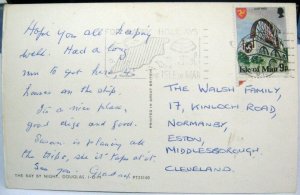 Hope you all keeping
well. Had a long
run to get here by
houses on the ship.
It's a nice place,
good digs and food.
Susan is planning all
the time, she is tops at it.
See you.
THE BAY BY NIGHT, DOUGLAS, I.O.M. PT22140
PRINTED IN GREAT BRITAIN
HOLIDAYS
ISLE OF MAN
Isle of Man 9p
THE WALSH FAMILY,
17, KINLOCH ROAD,
NORMANBY,
ESTON,
MIDDLESBOROUGH,
CLEVELAND.